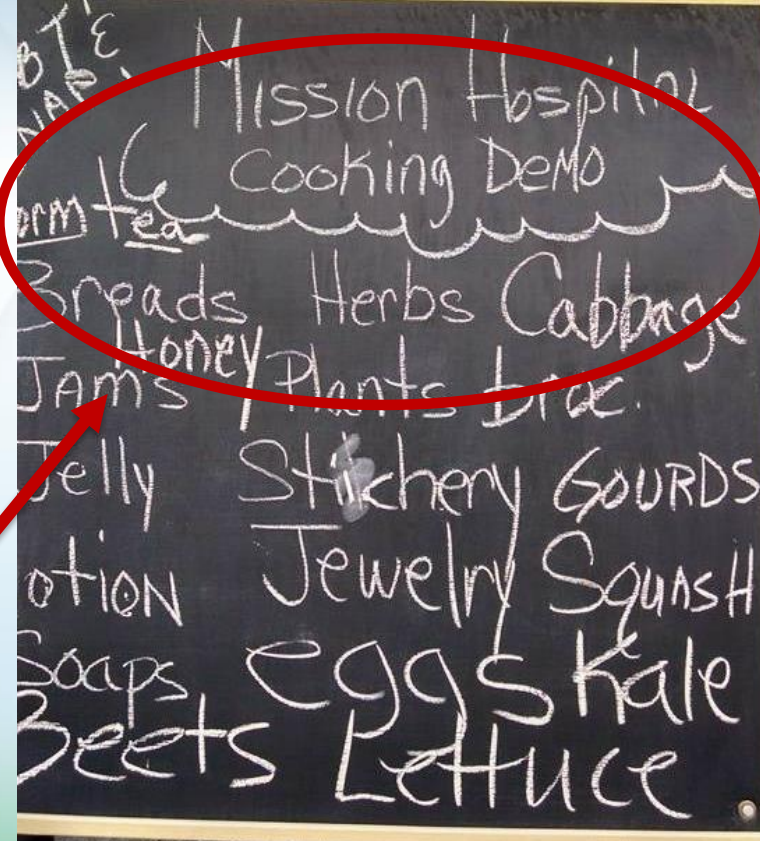 Mission Hospital
Cooking Demo
tea
Breads Herbs Cabbage
Honey
Jams Plants broc.
Jelly Stichery Gourds
otion Jewelry Squash
Soaps eggs Kale
Beets Lettuce